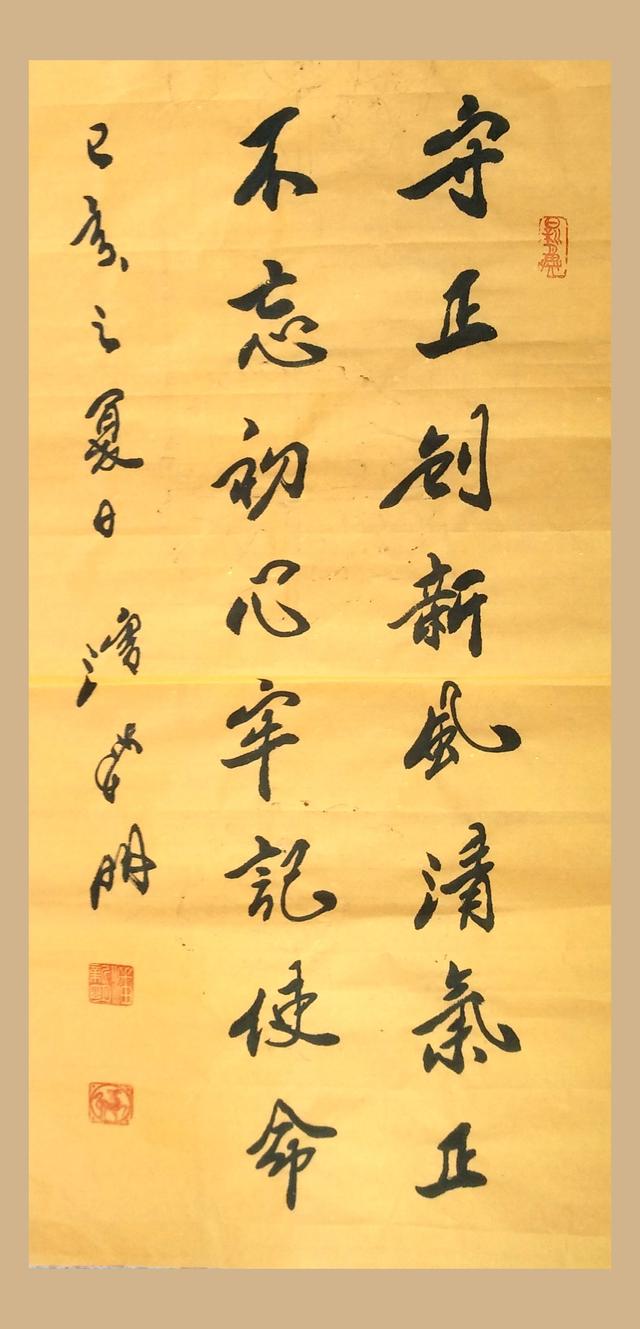 守正创新風清氣正
不忘初心牢記使命
己亥之夏日